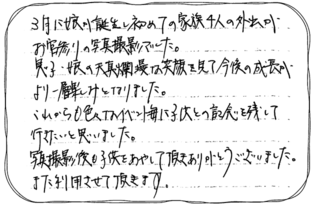 3月に娘が誕生し初めての家族4人の外出が
お宮参りの写真撮影でした。
息子・娘の天真爛漫な笑顔を見て今後の成長が
より一層楽しみとなりました。
これからも色んなイベント毎に子供との記念を残して
行きたいと思いました。
写真撮影後も子供をあやして頂きありがとうございました。
また利用させて頂きます。